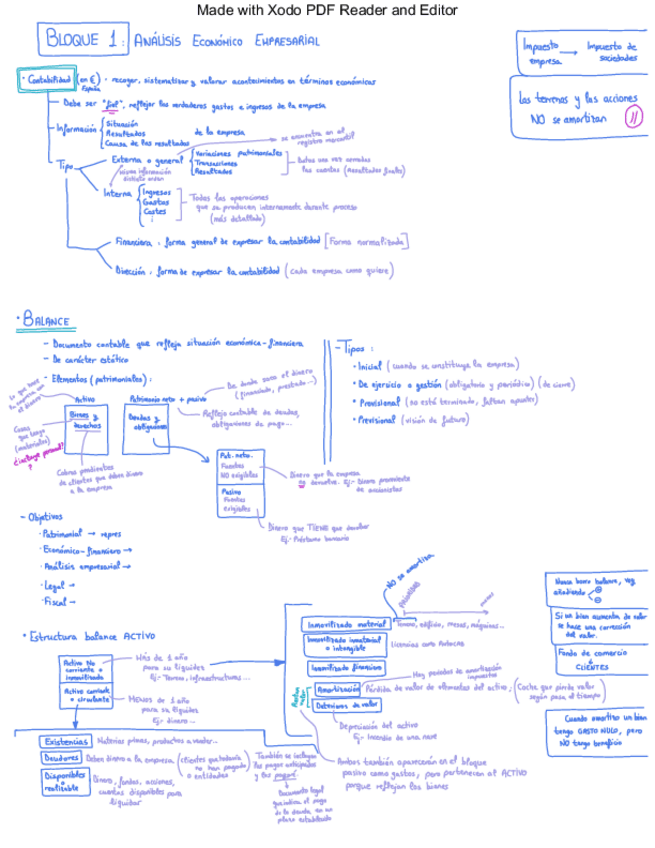 Made with Xodo PDF Reader and Editor
BLOQUE 1: ANÁLISIS ECONÓMICO EMPRESARIAL
Impuesto empresa → Impuesto de sociedades
Los terrenos y las acciones
NO se amortizan !!
· Contabilidad (en €) · recoger, sistematizar y valorar acontecimientos en términos económicos
España
Debe ser "fiel", reflejar los verdaderos gastos e ingresos de la empresa
Información
Situación
Resultados
Causa de los resultados
de la empresa
se encuentra en el
registro mercantil
Tipo
Externa o general
Variaciones patrimoniales
Transacciones
Resultados
Datos una vez cerradas
las cuentas (Resultados finales)
misma información
distinto orden
Interna
Ingresos
Gastos
Costes
Todas las operaciones
que se producen internamente durante proceso
(más detallado)
Financiera, forma general de expresar la contabilidad [Forma normalizada]
Dirección, forma de expresar la contabilidad (cada empresa como quiere)
· BALANCE
- Documento contable que refleja situación económica-financiera
- De carácter estático
- Elementos (patrimoniales):
Lo que hace
la empresa con
el dinero
Activo
Bienes y
derechos
Patrimonio neto + pasivo
Deudas y
obligaciones
De donde saco el dinero
(financiado, prestado...)
Reflejo contable de deudas,
obligaciones de pago...
Cosas
que tengo
(materiales)
¿incluye personal?
Cobros pendientes
de clientes que deben dinero
a la empresa
Pat. neto.
Fuentes
NO exigibles
Pasivo
Fuentes
exigibles
Dinero que la empresa
no devuelve. Ej- Dinero proveniente
de accionistas
Dinero que TIENE que devolver
Ej- Préstamo bancario
- Tipos:
· Inicial (cuando se constituye la empresa)
· De ejercicio o gestión (obligatorio y periódico) (de cierre)
· Provisional (no está terminado, faltan apuntes)
· Previsional (visión de futuro)
- Objetivos
· Patrimonial → repres
· Económico-financiero →
· Análisis empresarial →
· Legal →
· Fiscal →
· Estructura balance ACTIVO
Activo No
corriente o
inmovilizado
Activo corriente
o circulante
Más de 1 año
para su liquidez
Ej- Terreno, infraestructuras...
Menos de 1 año
para su liquidez
Ej- dinero...
Existencias Materias primas, productos a vender...
Deudores Deben dinero a la empresa (clientes que todavía no han pagado) o entidades
También se incluyen
los pagos anticipados
y los pagaré.
Documento legal
que indica el pago
de la deuda en un
plazo establecido
Disponibles
o
realizable
Dinero, fondos, acciones,
cuentas disponibles para
liquidar
NO se amortiza
Inmovilizado material Terreno, edificio, mesas, máquinas...
Inmovilizado inmaterial
o intangible
Licencias como Autocad
Inmovilizado financiero
Hay periodos de amortización
impuestos
Amortización Pérdida de valor de elementos del activo, (Coche que pierde valor
según pasa el tiempo)
Deterioros de valor
Depreciación del activo
Ej- Incendio de una nave
Ambos también aparecerán en el bloque
pasivo como gastos, pero pertenecen al ACTIVO
porque reflejan los bienes
Nunca borro balance, voy
añadiendo + -
Si un bien aumenta de valor
se hace una corrección
del valor.
Fondo de comercio
CLIENTES
Cuando amortizo un bien
tengo GASTO NULO, pero
NO tengo beneficio